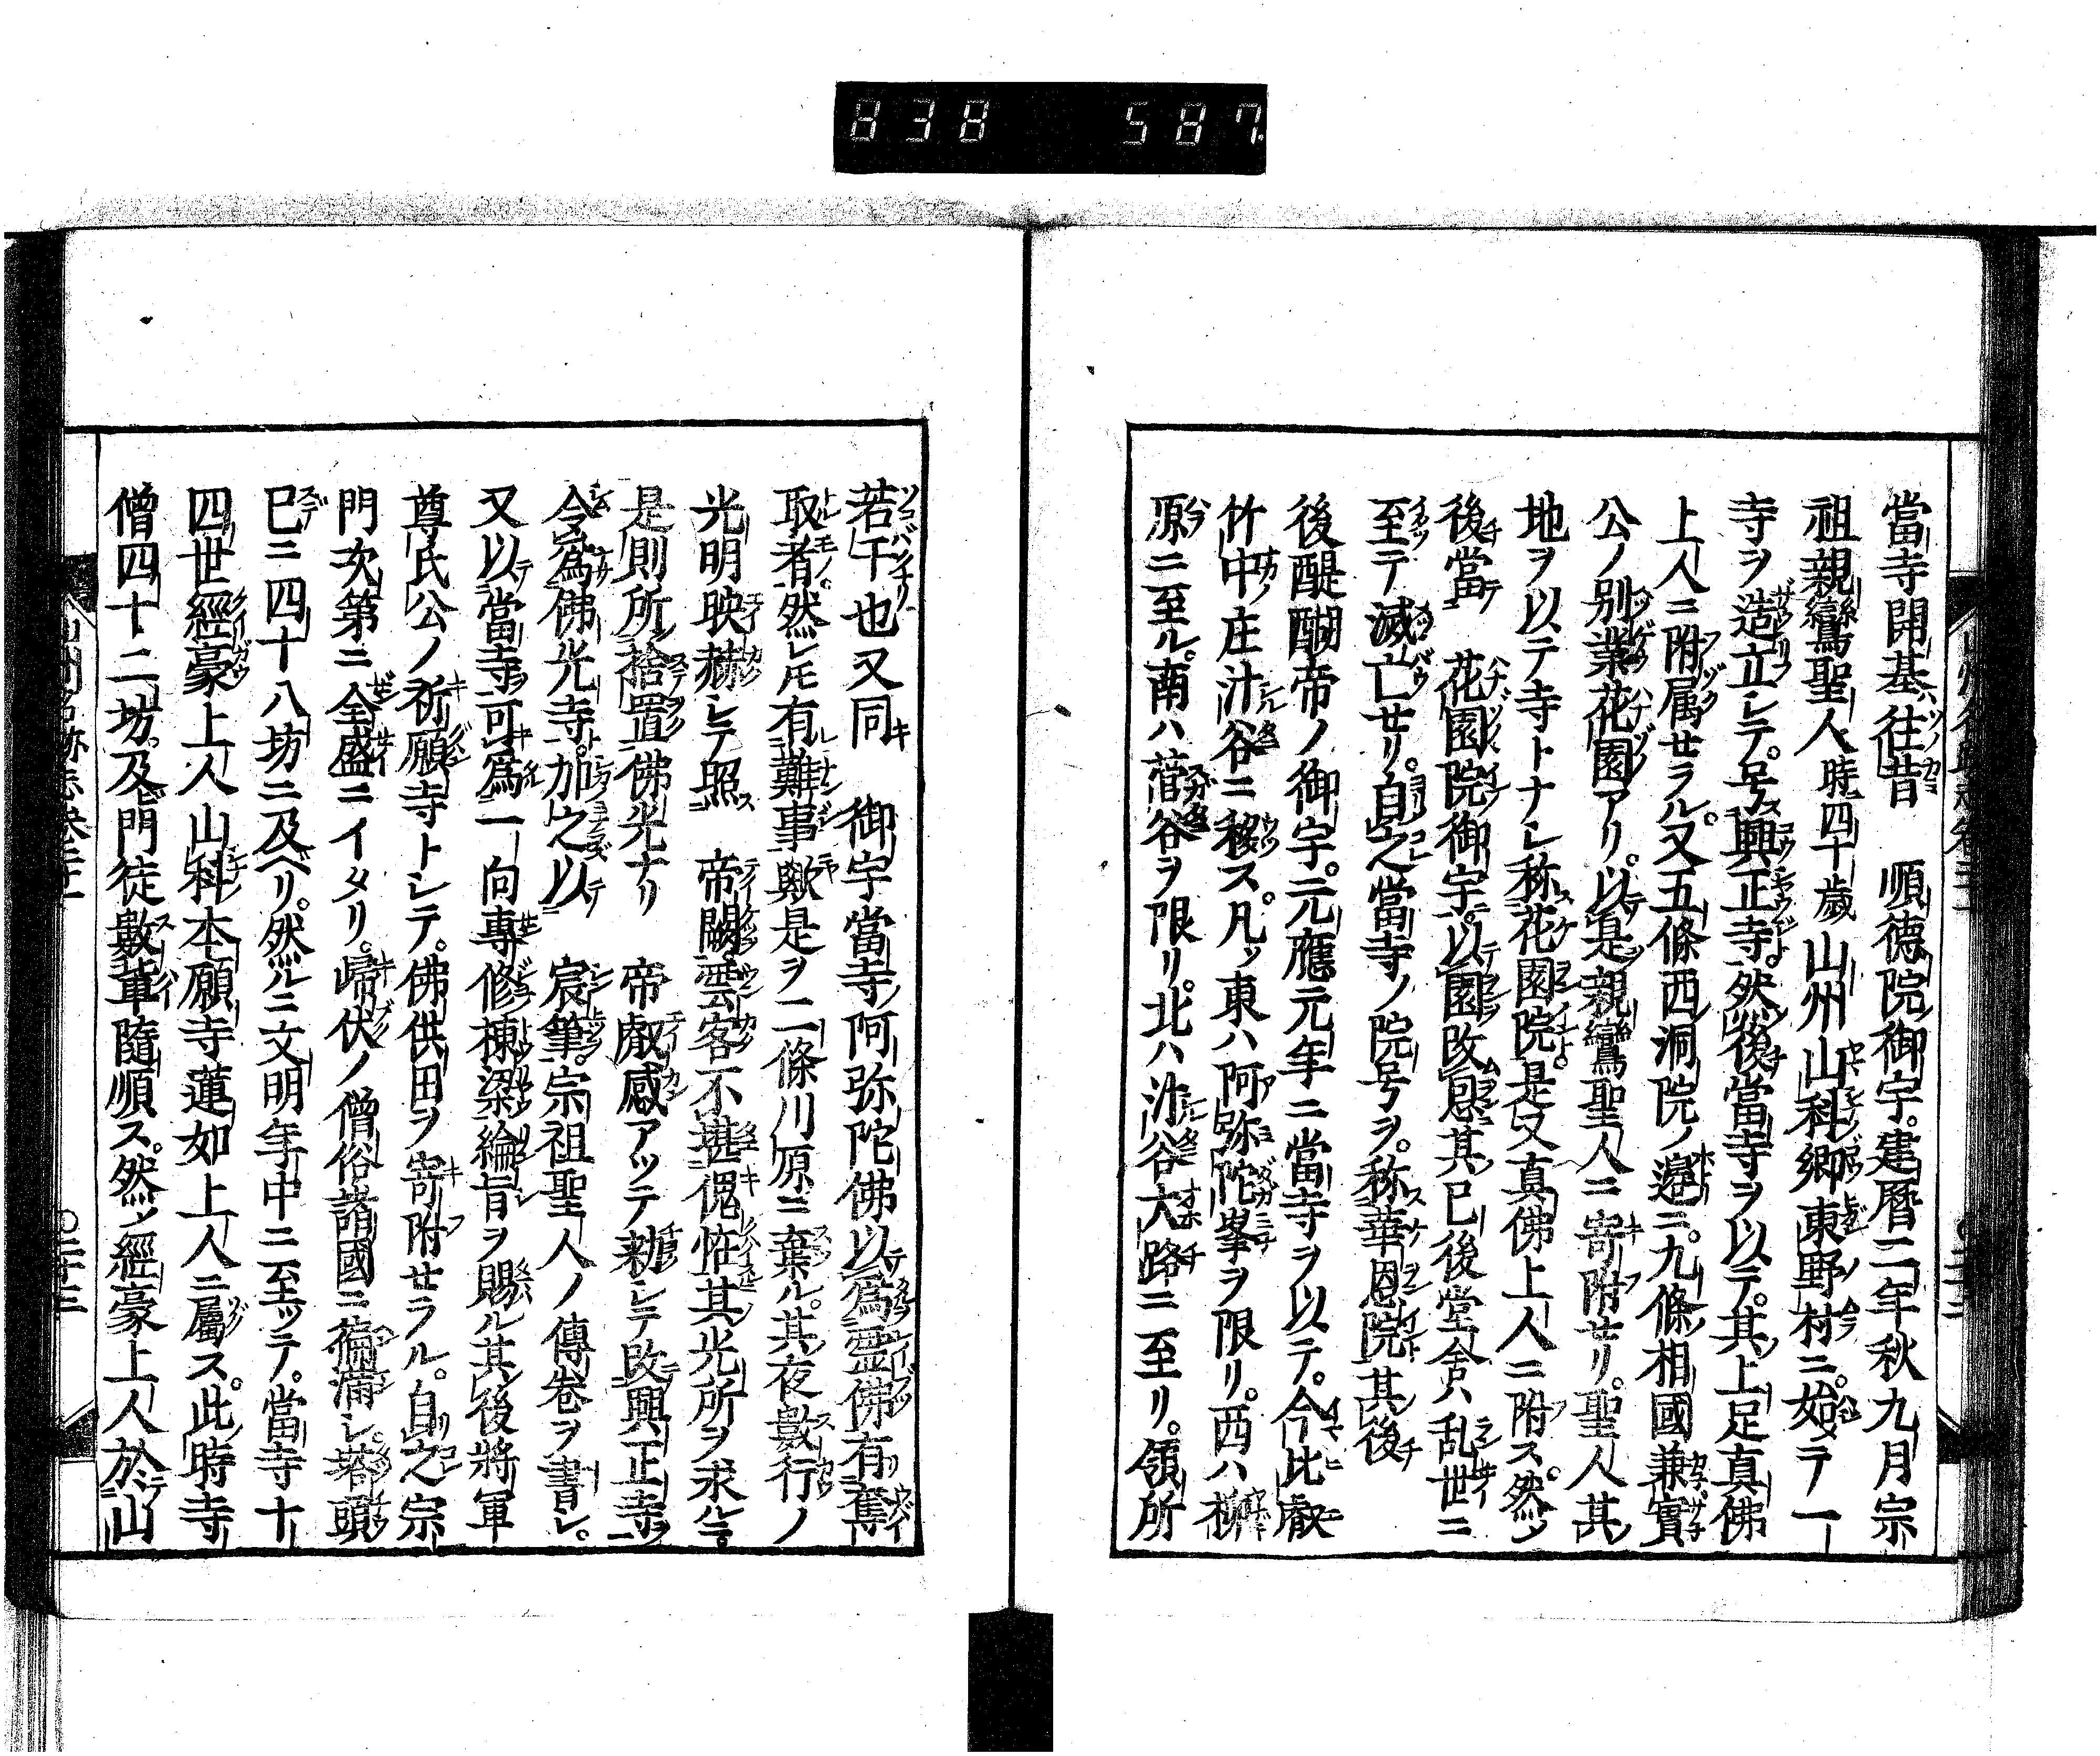 838 587
當寺開基ハ往昔　順德院ノ御宇。建曆二年秋九月宗
祖親鸞聖人時四十歲山州山科鄉東野村ニ。始テ一
寺ヲ造立シテ。号ス興正寺ト。然後當寺ヲ以テ。其上足真佛
上人ニ附属セラル。又五條西洞院ノ邉ニ。九條相國兼實
公ノ別業花園アリ。以是ヲ親鸞聖人ニ寄附セリ。聖人其
地ヲ以テ寺トナシ称ス花園院ト。是又真佛上人ニ附ス。然ノ
後當テ　花園院御宇。以園改恩其已後堂舎ハ乱世ニ
至テ滅亡セリ。自之當寺ノ院号ヲ。称ス華恩院ト其後
後醍醐帝ノ御宇。元應元年ニ當寺ヲ以テ。今比叡
竹中ノ庄汁谷ニ移ス。凡ッ東ハ阿弥陀峯ヲ限リ。西ハ柳
原ニ至ル。南ハ菅谷ヲ限リ。北ハ汁谷大路ニ至リ。領所
若干也又同キ　御宇當寺ノ阿弥陀佛以テ為霊佛有奪
取者ノ。然レ𪜈有ル難事歟是ヲ二條川原ニ棄ル。其夜數行ノ
光明映赫シテ照ス　帝闕ヲ。雲客不堪傀恠其光所ヲ求ルニ。
是則所拾置佛光ナリ　帝叡感アッテ勅シテ改テ興正寺ヲ
令為佛光寺ト。加之以テ　宸筆。宗祖聖人ノ傳卷ヲ書シ。
又以テ當寺ヲ可キ為一向專修棟梁綸旨ヲ賜ル其後將軍
尊氏公ノ祈願寺トシテ。佛供田ヲ寄附セラル。自之宗
門次第ニ全盛ニイタリ。皈伏ノ僧俗諸國ニ徧滿シ。塔頭
已ニ四十八坊ニ及ベリ。然ルニ文明年中ニ至ッテ。當寺十
四世經豪上人山科本願寺蓮如上人ニ屬ス。此時寺
僧四十二坊。及ビ門徒數軰隨順ス。然ノ經豪上人於テ山